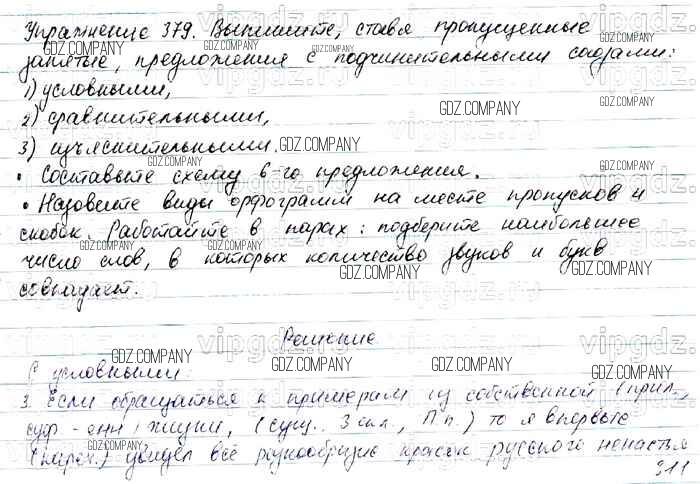 Упражнение 379. Выпишите, ставя пропущенные
запятые, предложения с подчинительными союзами:
1) условными,
2) сравнительными,
3) изъяснительными.
• Составьте схему 6-го предложения.
• Назовите виды орфограмм на месте пропусков и
скобок. Работайте в парах: подберите наибольшее
число слов, в которых количество звуков и букв
совпадает.
Решение
С условными:
3. Если обращаться к примерам из собственной (прил.,
суф -енн) жизни, (сущ., 3 скл., П.п.) то я впервые
(нареч.) увидел всё разнообразие красок русского ненастья
311
GDZ.COMPANY
vipgdz.ru